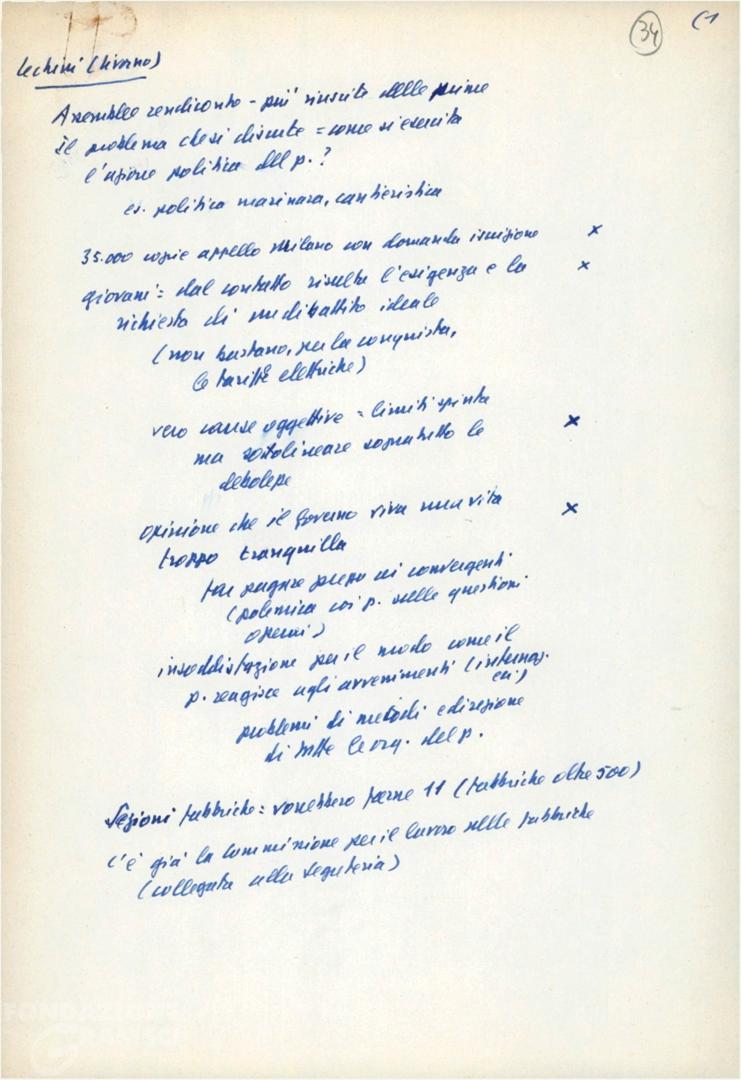 34
(1
Lechini (Livorno)
Assemblee rendiconto - più riuscite delle prime
Il problema che si discute = come si esercita
l'azione politica del p.?
es. politica marinara, cantieristica
35.000 copie appello Milano con domanda iscrizione x
giovani = dal contatto risulta l'esigenza e la x
richiesta di un dibattito ideale
(non bastano, per la conquista,
le tariffe elettriche)
vero cause oggettive = limiti spinta
ma sottolineare sopratutto le x
debolezze
opinione che il governo viva una vita x
troppo tranquilla
far pagare prezzo ai convergenti
(polemica coi p. sulle questioni
operaie)
insoddisfazione per il modo come il
p. reagisce agli avvenimenti (internaz.
ecc.)
problemi di metodi e direzione
di tutte le org. del p.
Sezioni fabbriche = vorrebbero farne 11 (fabbriche oltre 500)
c'è già la commissione per il lavoro nelle fabbriche
(collegata alla segreteria)
FONDAZIONE
GRAMSCI